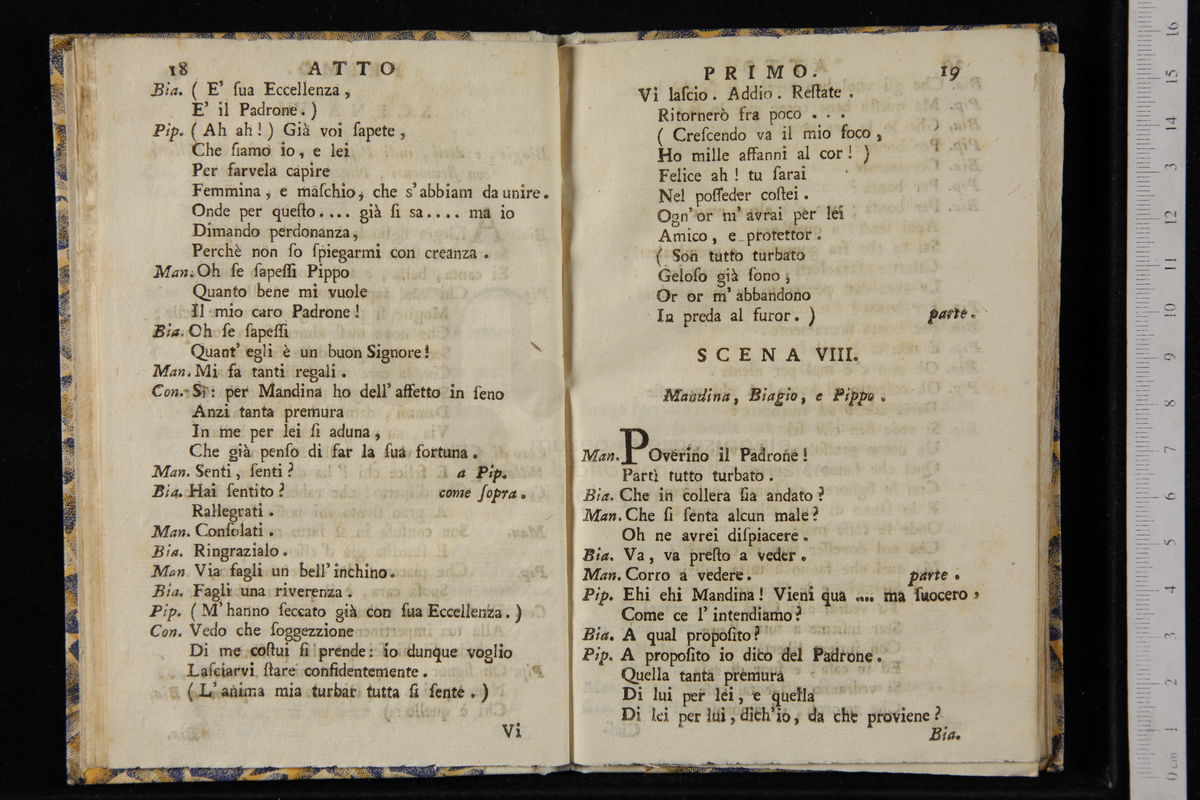 18 ATTO
Bia. ( E' ſua Eccellenza,
E' il Padrone. )
Pip. ( Ah ah! ) Già voi ſapete,
Che ſiamo io, e lei
Per farvela capire
Femmina, e maſchio, che s'abbiam da unire.
Onde per queſto.... già ſi sa.... ma io
Dimando perdonanza,
Perchè non ſo ſpiegarmi con creanza.
Man. Oh ſe ſapeſſi Pippo
Quanto bene mi vuole
Il mio caro Padrone!
Bia. Oh ſe ſapeſſi
Quant' egli è un buon Signore!
Man. Mi fa tanti regali.
Con. Sì: per Mandina ho dell'affetto in ſeno
Anzi tanta premura
In me per lei ſi aduna,
Che già penſo di far la ſua fortuna.
Man. Senti, ſenti? a Pip.
Bia. Hai ſentito? come ſopra.
Rallegrati.
Man. Conſolati.
Bia. Ringrazialo.
Man Via fagli un bell'inchino.
Bia. Fagli una riverenza.
Pip. ( M'hanno ſeccato già con ſua Eccellenza. )
Con. Vedo che ſoggezzione
Di me coſtui ſi prende: io dunque voglio
Laſciarvi ſtare confidentemente.
( L'anima mia turbar tutta ſi ſente. )
Vi
PRIMO. 19
Vi laſcio. Addio. Reſtate.
Ritornerò fra poco ...
( Creſcendo va il mio foco,
Ho mille affanni al cor! )
Felice ah! tu ſarai
Nel poſſeder coſtei.
Ogn'or m'avrai per lei
Amico, e protettor.
( Son tutto turbato
Geloſo già ſono,
Or or m'abbandono
In preda al furor. ) parte.
SCENA VIII.
Mandina, Biagio, e Pippo.
Man. POverino il Padrone!
Partì tutto turbato.
Bia. Che in collera ſia andato?
Man. Che ſi ſenta alcun male?
Oh ne avrei diſpiacere.
Bia. Va, va preſto a veder.
Man. Corro a vedere. parte.
Pip. Ehi ehi Mandina! Vieni qua .... ma ſuocero,
Come ce l'intendiamo?
Bia. A qual propoſito?
Pip. A propoſito io dico del Padrone.
Quella tanta premura
Di lui per lei, e quella
Di lei per lui, dich'io, da che proviene?
Bia.
0 cm 1 2 3 4 5 6 7 8 9 10 11 12 13 14 15 16